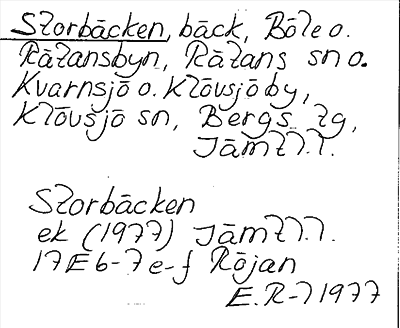 Storbäcken, bäck, Böle o.
Rätansbyn, Rätans sn o.
Kvarnsjö o. Klövsjö by,
Klövsjö sn, Bergs tg,
Jämtl.l.
Storbäcken
ek (1977) Jämtl.l.
17E 6-7 e-f Röjan
E.R-l 1977